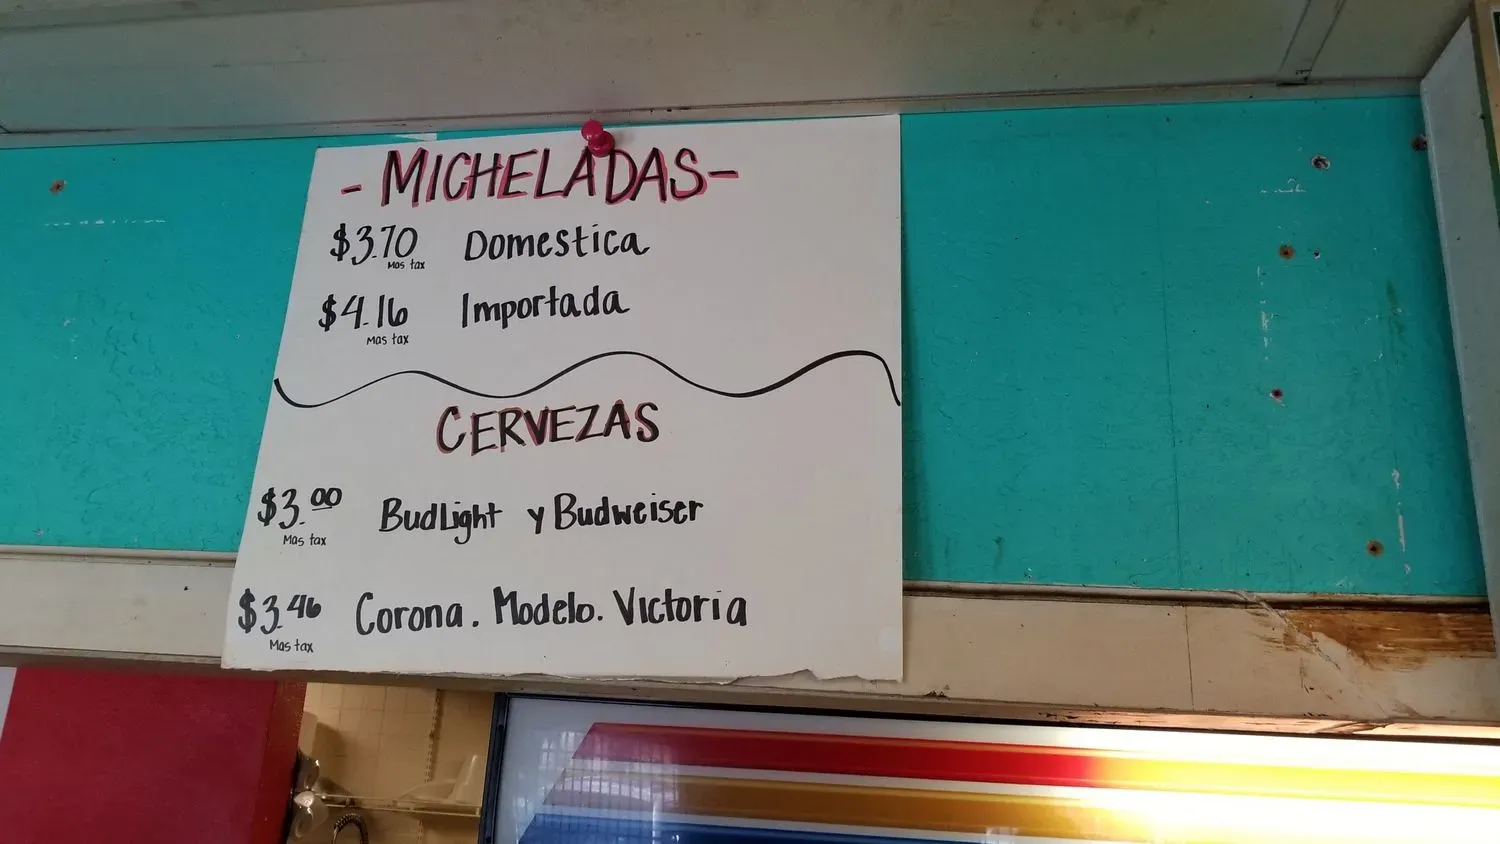 - MICHELADAS -
$3.70 Domestica
Mas tax
$4.16 Importada
Mas tax
CERVEZAS
$3.00 BudLight y Budweiser
Mas tax
$3.46 Corona. Modelo. Victoria
Mas tax